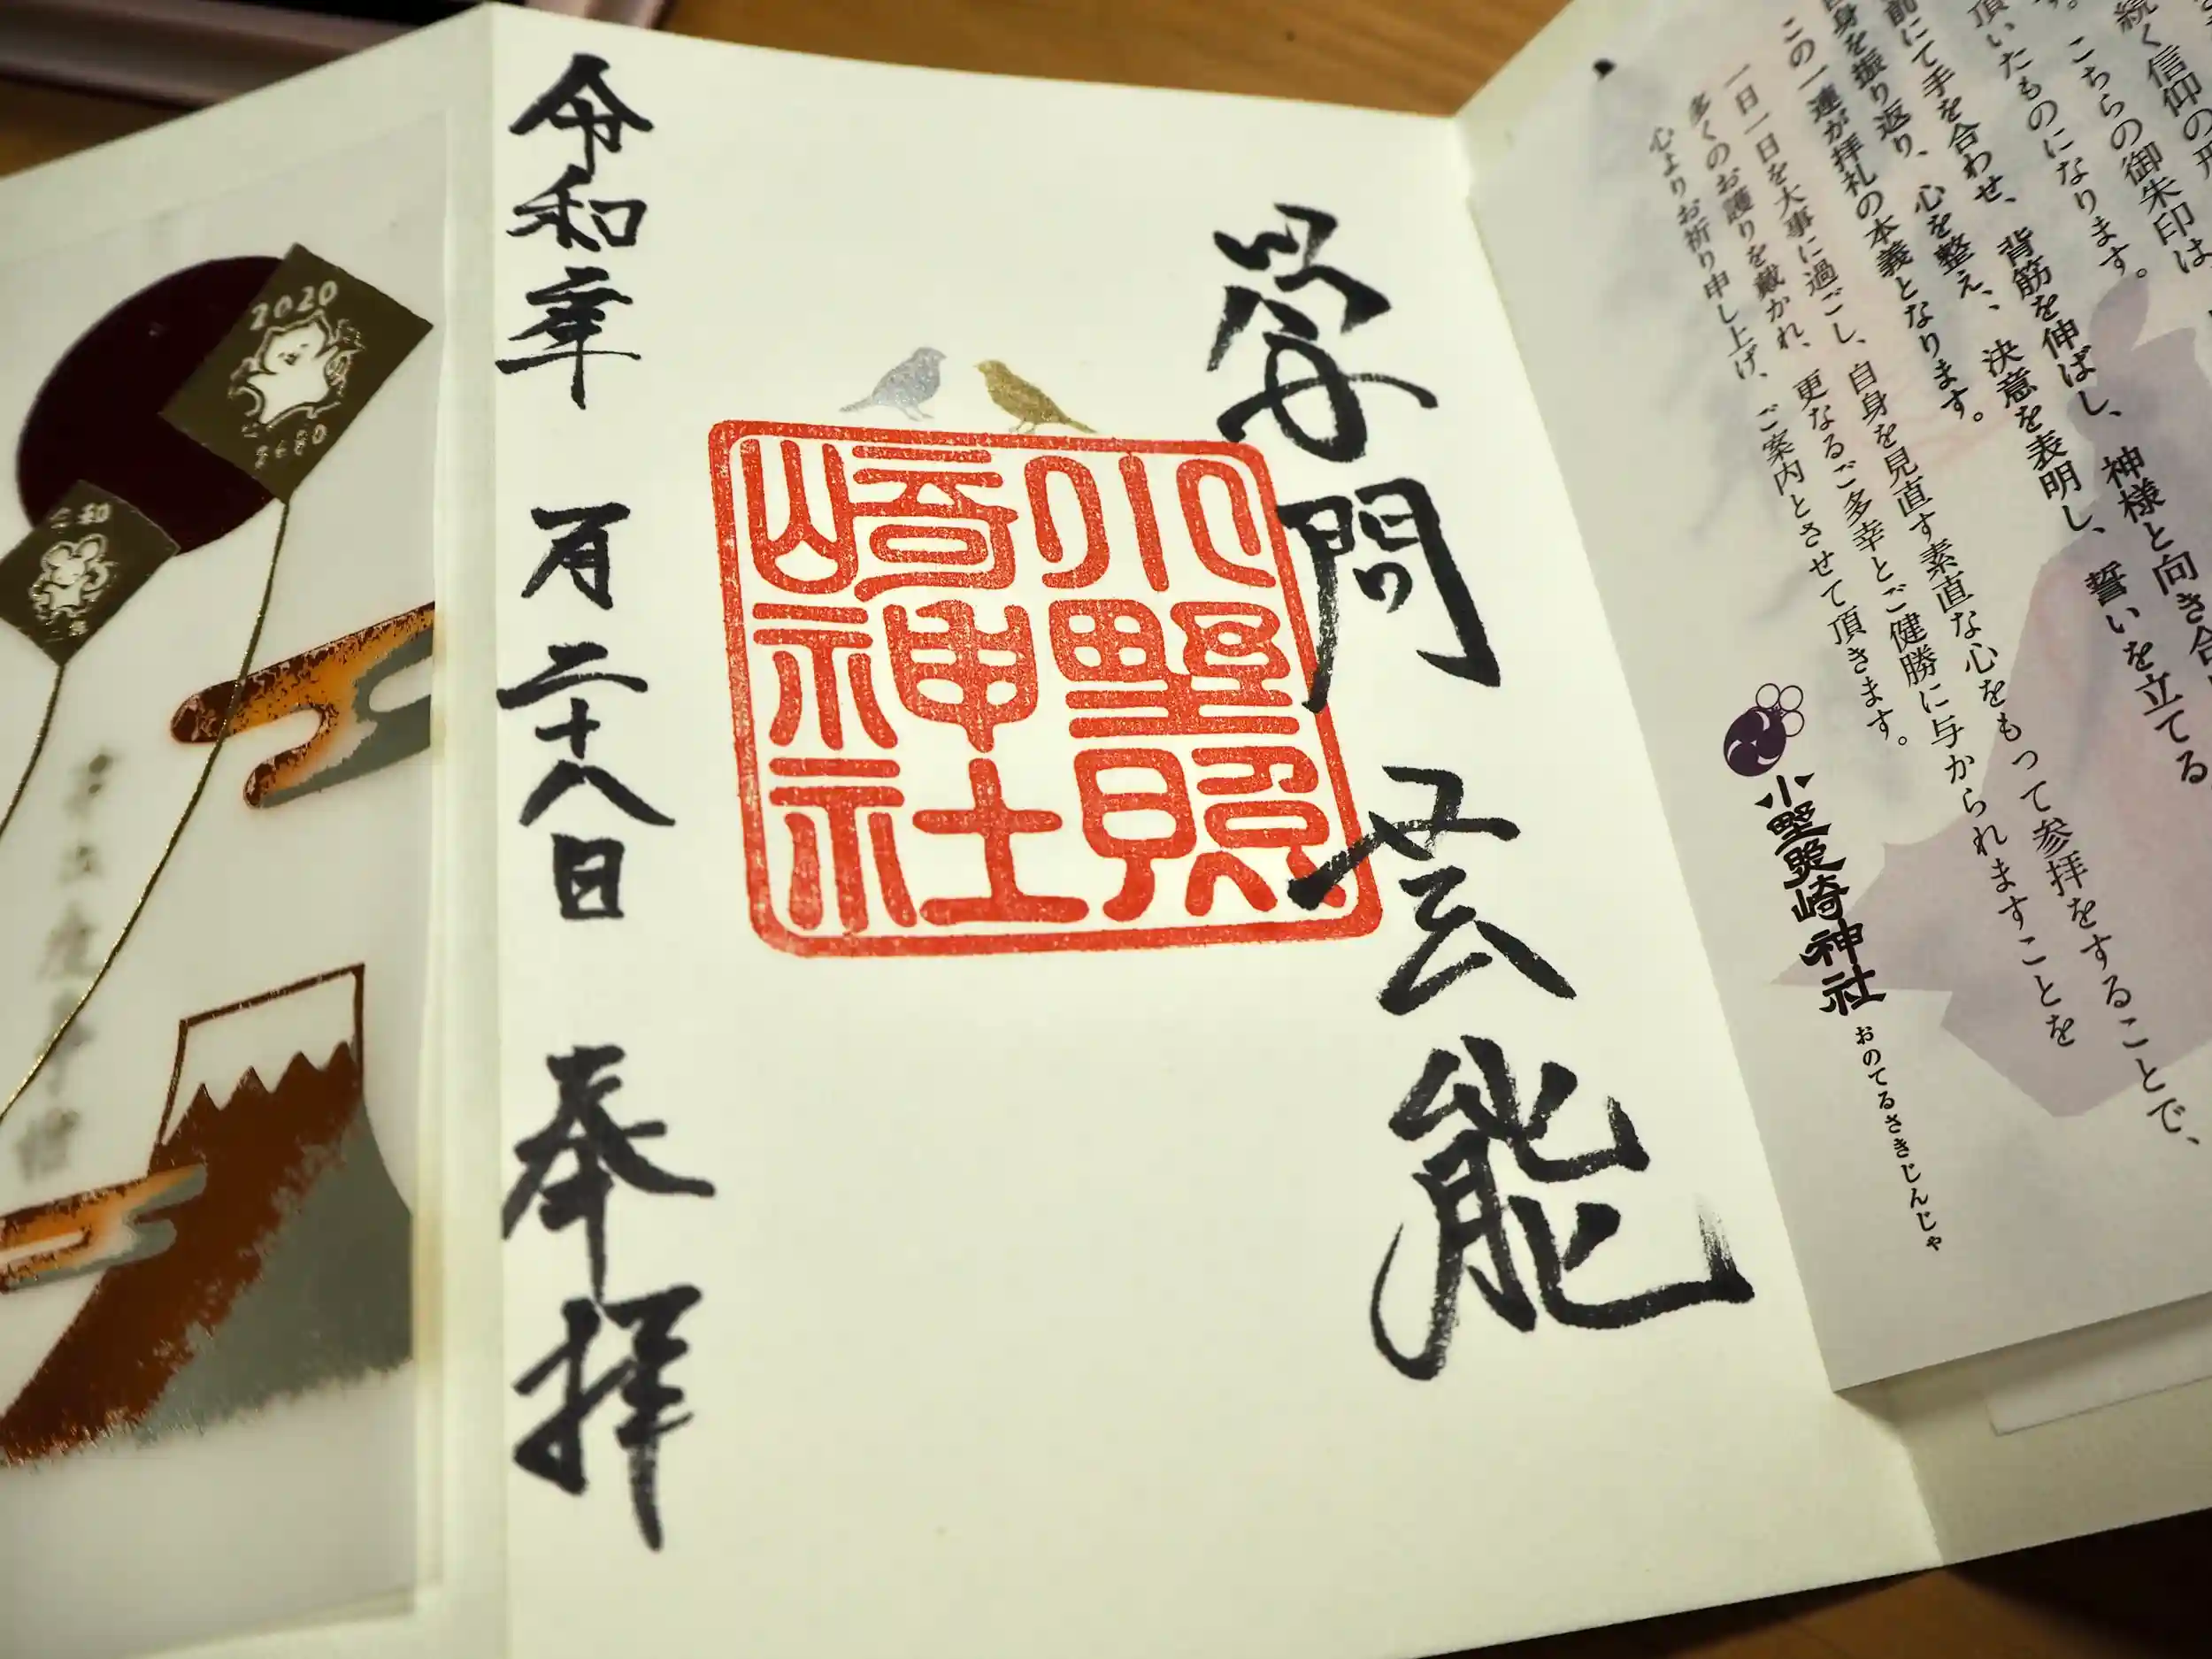 続く信仰の
こちらの御朱印は
頂いたものになります。
前にて手を合わせ、背筋を伸ばし、神様と向き合
自身を振り返り、心を整え、決意を表明し、誓いを立てる
この一連が拝礼の本義となります。
一日一日を大事に過ごし、自身を見直す素直な心をもって参拝をすることで、
多くのお護りを戴かれ、更なるご多幸とご健勝に与かられますことを
心よりお祈り申し上げ、ご案内とさせて頂きます。
小野照崎神社
おのてるさきじんじゃ
学問 芸能
小野照
崎神社
令和二年 一月二十八日 奉拝
2020
2680
令和
二年